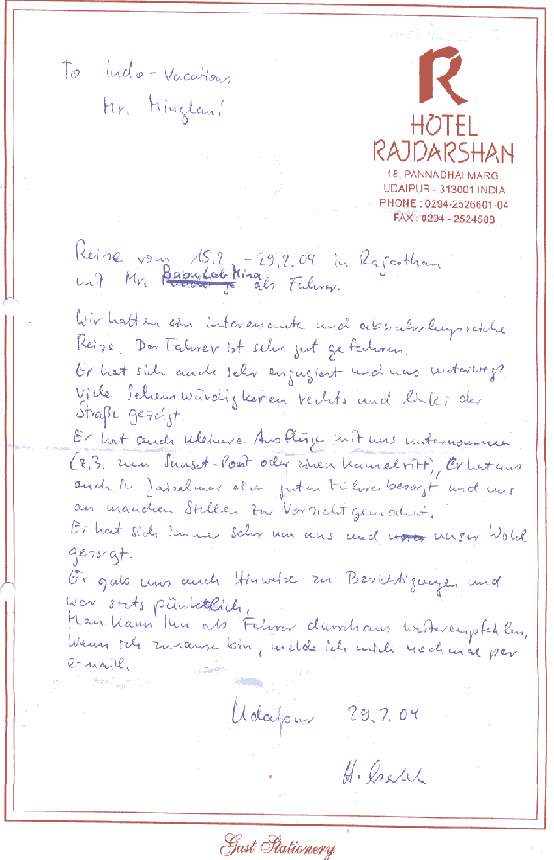 To Indo-Vacations
Mr. Minglani
R
HOTEL
RAJDARSHAN
18, PANNADHAI MARG
UDAIPUR - 313001 INDIA
PHONE : 0294-2526601-04
FAX : 0294 - 2524588
Reise vom 15.2. - 29.2.04 in Rajasthan
mit Mr. Babu Lab Mina als Führer.
Wir hatten ein interessante und abwechslungsreiche
Reise. Der Fahrer ist sehr gut gefahren.
Er hat sich auch sehr engagiert und uns unterwegs
viele Sehenswürdigkeiten rechts und links der
Straße gezeigt
Er hat auch kleinere Ausflüge mit uns unternommen
(z.B. zum Sunset-Point oder einen Kamelritt), Er hat uns
auch in Jaiselmer einen guten Führer besorgt und uns
an manchen Stellen zur Vorsicht gemahnt.
Er hat sich immer sehr um uns und unser Wohl
gesorgt.
Er gab uns auch Hinweise zu Besichtigungen und
war stets pünktlich.
Man kann ihn als Führer durchaus weiterempfehlen.
Wenn ich zuhause bin, melde ich mich nochmal per
e-mail.
Udaipur 29.2.04
H.
Gust Stationery